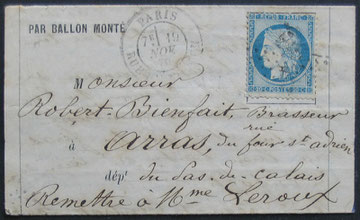 PAR BALLON MONTÉ
PARIS
REPUB. FRANC.
20 C. POSTES 20 C.
Monsieur
Robert-Bienfait, Brasseur
rue
à Arras, du four st adrien
dépt
du Pas-de-Calais
Remettre à Mme Leroux